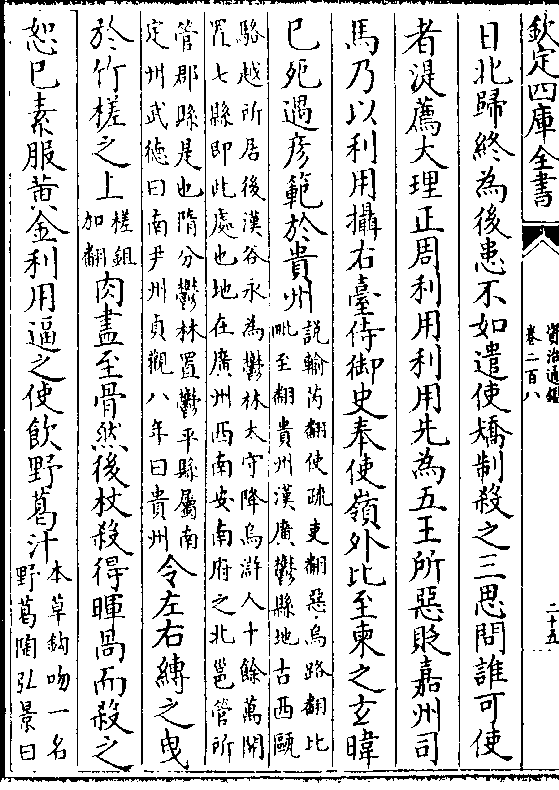 欽定四庫全書
資治通鑑
卷二百八
二十五
日北歸終為後患不如遣使矯制殺之三思問誰可使
者湜薦大理正周利用利用先為五王所惡貶嘉州司
馬乃以利用攝右臺侍御史奉使嶺外比至柬之玄暐
已死遇彦範於貴州
説輸芮翻使疏吏翻惡烏路翻比
毗至翻貴州漢廣鬱縣地古西甌
駱越所居後漢谷永為鬱林太守降烏滸人十餘萬開
置七縣即此處也地在廣州西南安南府之北邕管所
管郡縣是也隋分鬱林置鬱平縣屬南
定州武徳曰南尹州貞觀八年曰貴州
令左右縛之曳
於竹槎之上
槎鉏
加翻
肉盡至骨然後杖殺得暉咼而殺之
恕已素服黄金利用逼之使飲野葛汁
本草鉤吻一名
野葛陶弘景曰